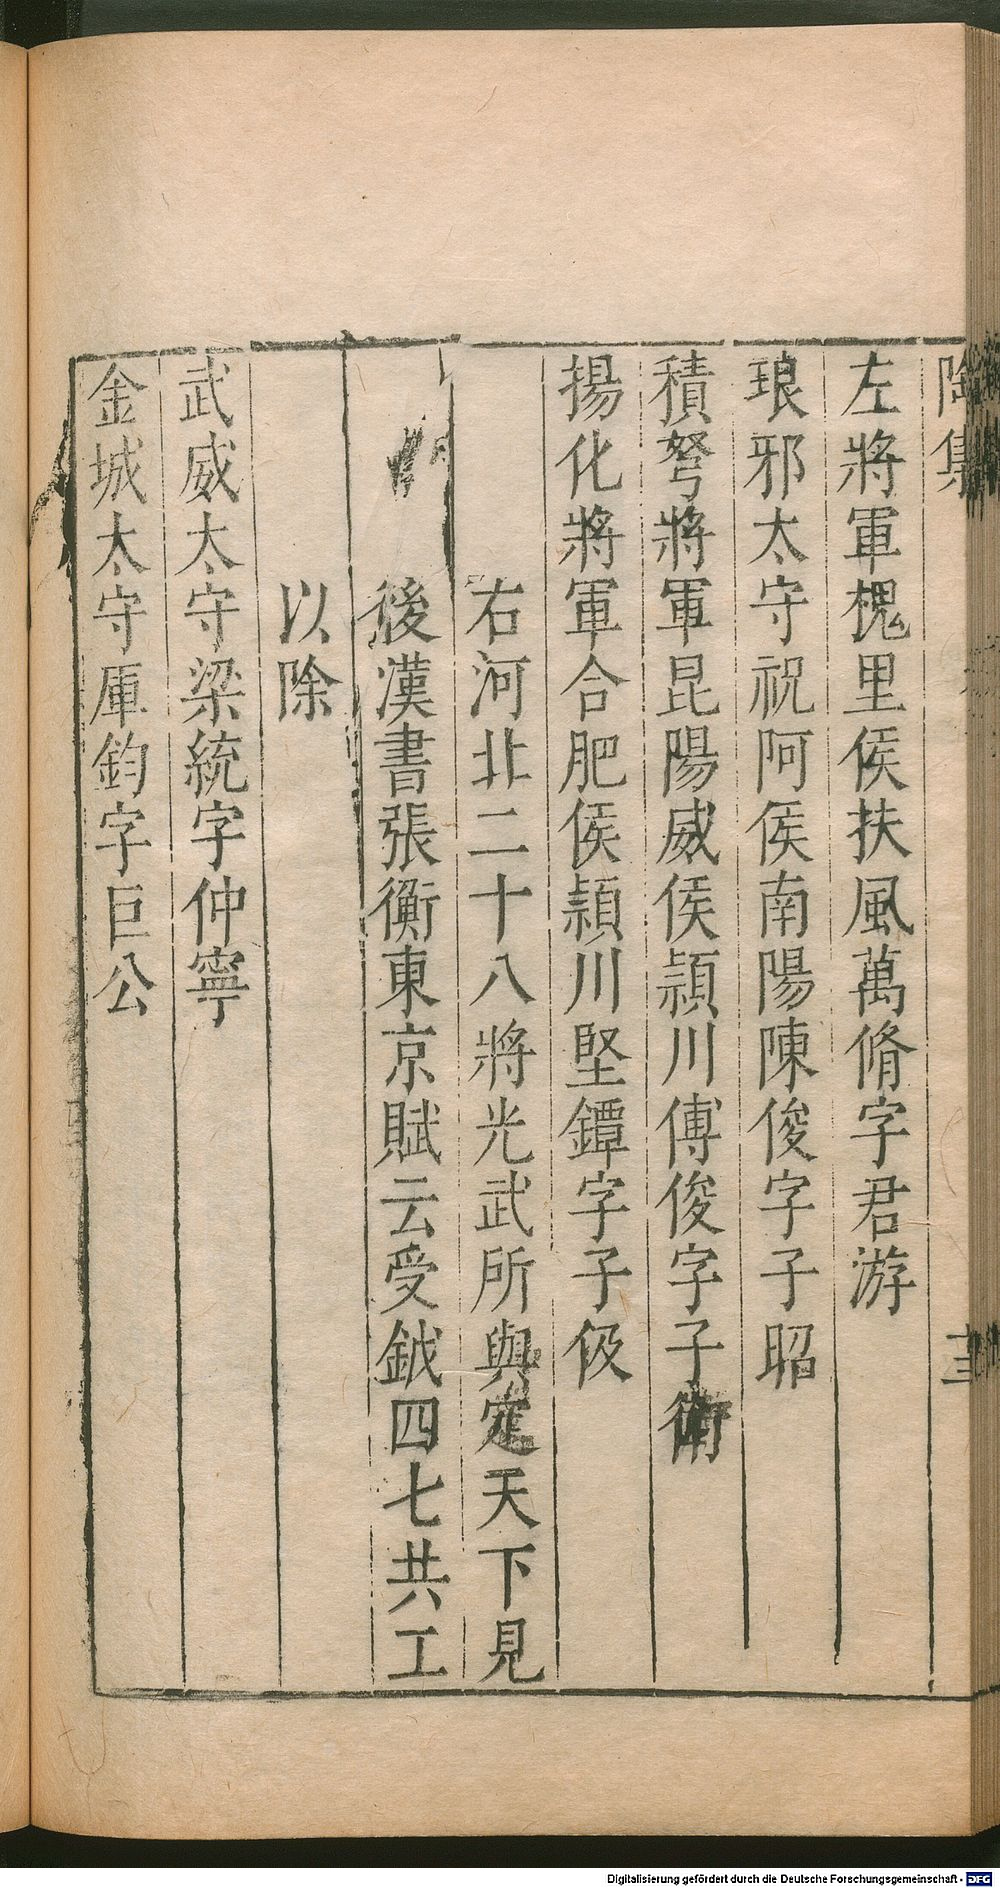 陶集
左將軍槐里侯扶風萬脩字君游
琅邪太守祝阿侯南陽陳俊字子昭
積弩將軍昆陽威侯潁川傅俊字子衛
揚化將軍合肥侯潁川堅鐔字子伋
右河北二十八將光武所與定天下見
後漢書張衡東京賦云受鉞四七共工
以除
武威太守梁統字仲寧
金城太守厙鈞字巨公
Digitalisierung gefördert durch die Deutsche Forschungsgemeinschaft - DFG